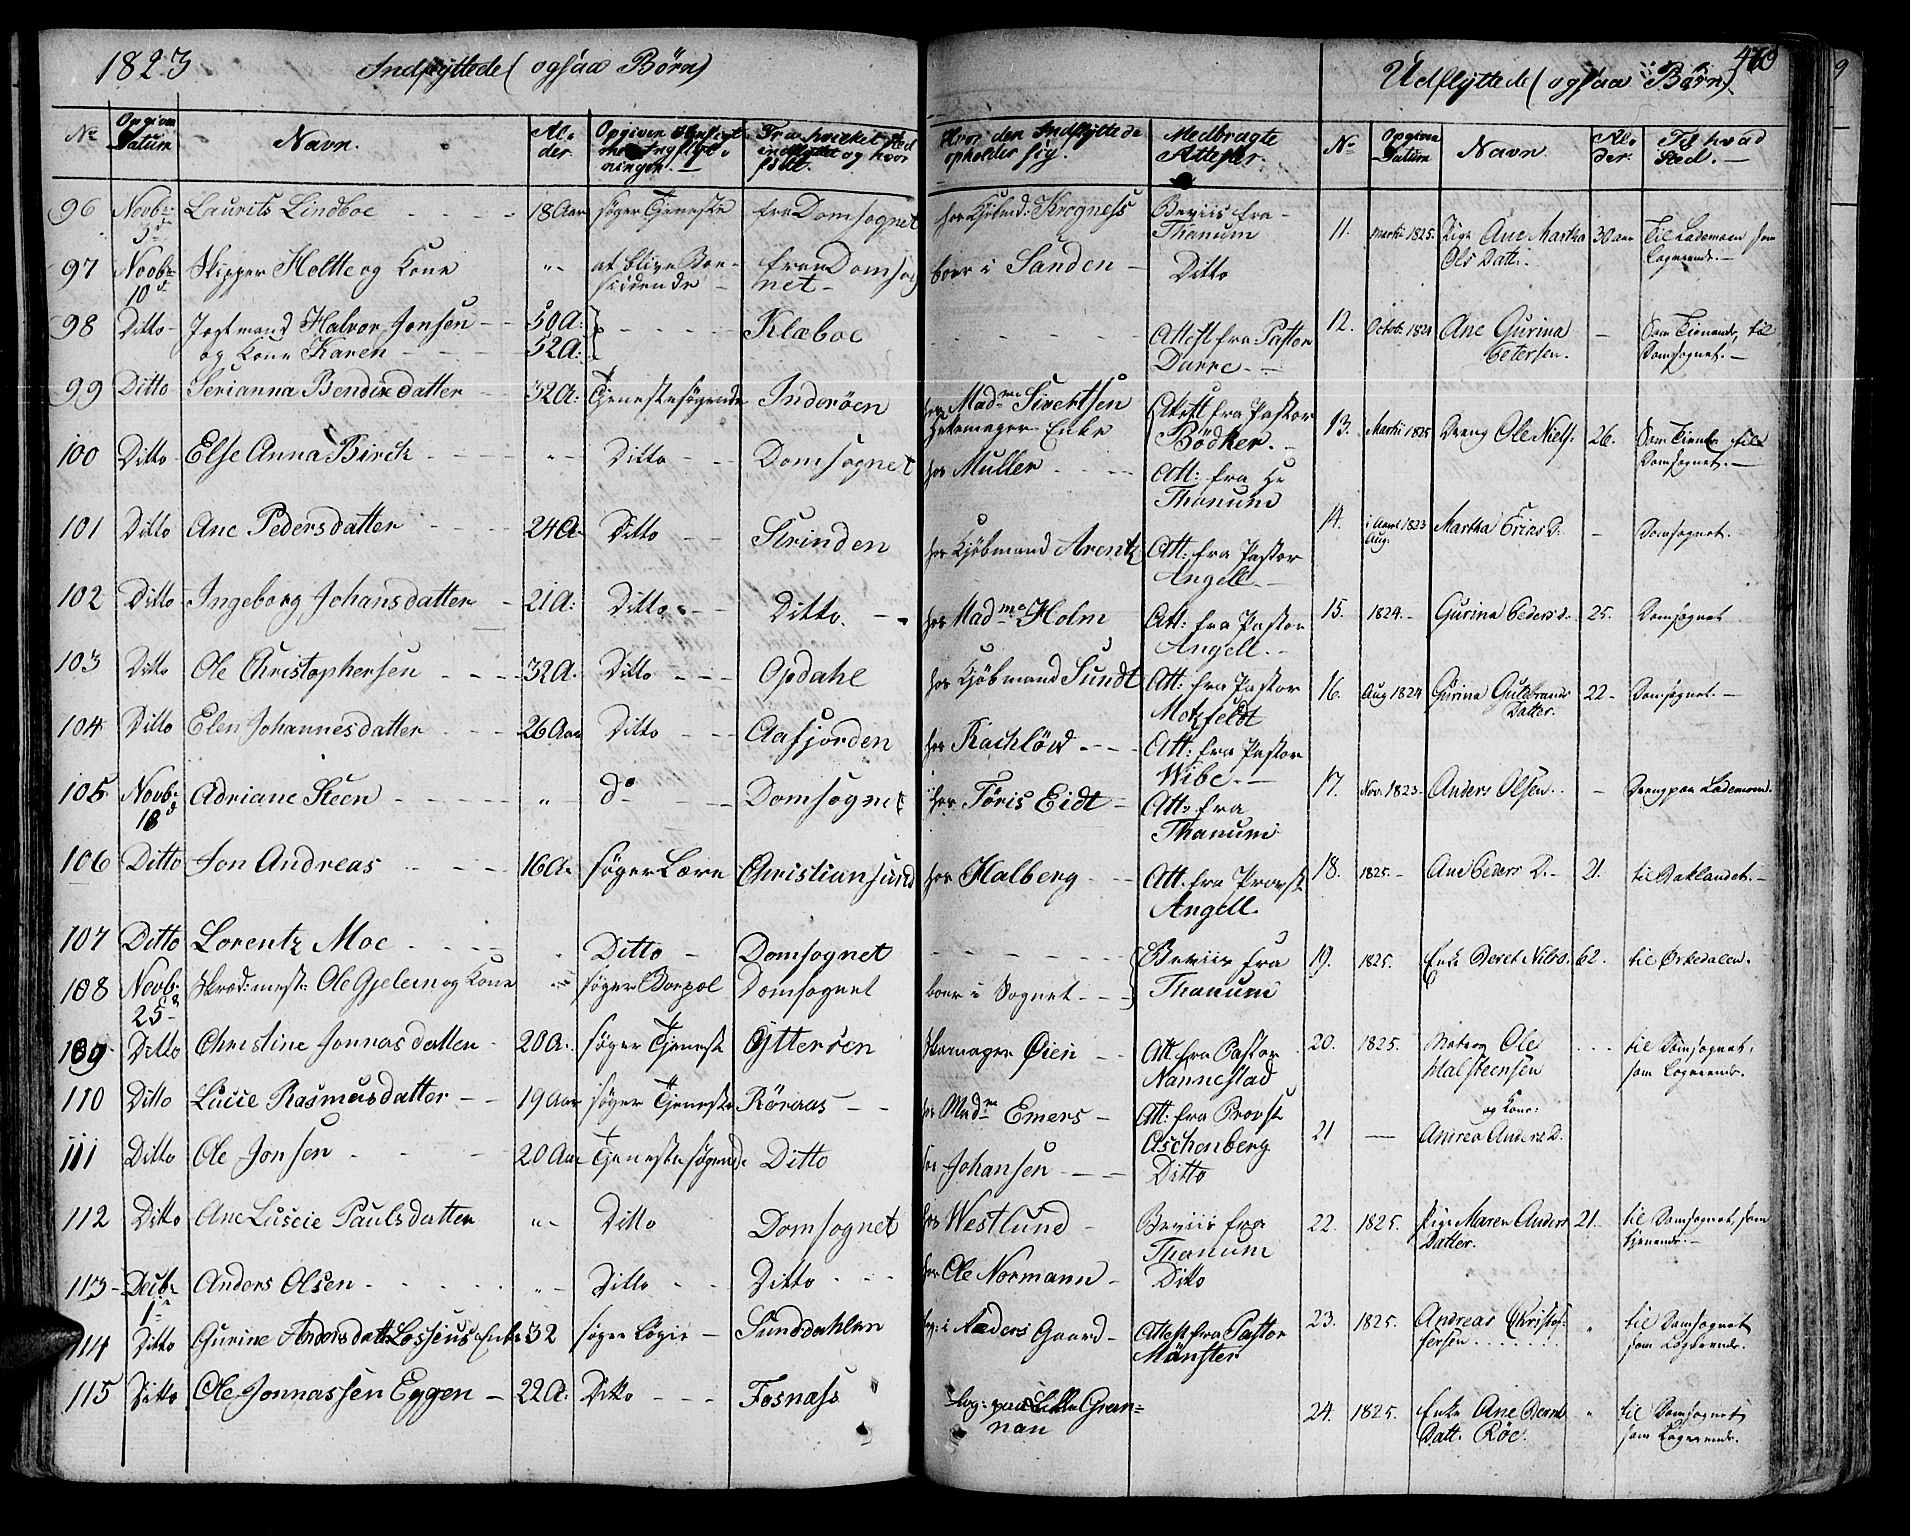 1823 Indflyttede (ogsaa Børn)
No Opgiven Datum Navn. Alder. Opgiven Hensigt med Indflytningen. Fra hvilket Sted indflyttet og hvor født. Hvor den Indflyttede opholder sig. Medbragte Attester.
96 Novbr 3d Laurits Lindboe 18 Aar søger Tjeneste fra Domsognet hos Kjøbmd: Krogness Beviis fra Thanum
97 Novbr 10d Skipper Holtte og Kone "- at blive Boesiddende fra Domsognet boer i Sanden Ditto
98 Ditto Jegtmand Halvor Jonsen 50 A:
og Kone Karen 52 A: Klæboe Attest fra Pastor Darre
99 Ditto Serianna Bendixdatter 32 A: Tjenestesøgende Inderöen hos Madme Sivertsen Enke Attest fra Pastor Bödker.
100 Ditto Else Anna Birck "- Ditto Domsognet hos Muller Att: fra Hr Thanum
101 Ditto Ane Pedersdatter 24 A Ditto Strinden hos Kjöbmand Arentz Att: fra Pastor Angell
102 Ditto Ingeborg Johansdatter 21 A: Ditto Ditto. hos Madme Holm Att: fra Pastor Angell
103 Ditto Ole Christophersen 32 A. Ditto Opdahl hos Kjöbmand Sundt Att: fra Pastor Motzfeldt
104 Ditto Elen Johannesdatter 26 Aar Ditto Aafjorden hos Rachlöw Att: fra Pastor Wibe
105 Novbr 18d Adriane Steen " do Domsognet hos Föris Eidt Att: fra Thanum
106 Ditto Jon Andreas 16 A. søger Lære Christiansund hos Halberg Att. fra Provst Angell.
107 Ditto Lorentz Moe Ditto Domsognet Beviis fra
108 Novbr 25 Skrædmestr: Ole Gjelem og Kone søger Boepæl Domsognet boer i Sognet Thanum
109 Ditto Christine Jonnasdatter 20 A. søger Tjeneste Ytterøen Skomager Öien Att. fra Pastor Nannestad
110 Ditto Lucie Rasmusdatter 19 Aar søger Tjeneste Röraas hos Madme Emers Att: fra Provst Aschenberg
111 Ditto Ole Jonsen 20 Aar Tjenestesøgende Ditto hos Johansen Ditto
112 Ditto Ane Luscie Paulsdatter "- Ditto Domsognet hos Westlund Beviis fra Thanum
113 Decbr 1 Anders Olsen "- Ditto Ditto hos Ole Normann Ditto
114 Ditto Gurine Andersdatter Lossius Enke 32 søger Logie Sunddahlen log: i Anders Gaard Attest fra Pastor Mänster
115 Ditto Ole Jonnassen Eggen 22 A: Ditto Fosnæss log: paa Lille Grannan
Udflyttede (ogsaa Børn).
No Opgiven Datum Navn Alder. Til hvad Sted.
11. Martii 1825. Pige Ane Martha Ols Datt. 30 aar Til Lademoen som Logerende.
12. Octob: 1824 Ane Gurina Petersen. Som Tienende, til Domsognet.
13. Martii 1825 Dreng Ole Niels. 26. Som Tienende til Domsognet.
14. i Aaret 1823 Aug. Martha Erics D. Domsognet.
15. 1824. Gurina Peders d. 25. Domsognet
16. Aug 1824 Gurina Guldbrands Datter. 22 Domsognet.
17. Nov. 1823 Anders Olsen. Dreng paa Lademoen.
18. 1825. Ane Peders D. 21. til Baklandet.
19. 1825. Enke Beret Nilsd. 62. til Örkedalen.
20. 1825. Ole Halsteensen til Domsognet, som Logerende.
21 og Kone: Andrea Anders D.
22. 1825. Pige Maren Anders Datter. 21. til Domsognet, som tjenende.
23. 1825. Andreas Christoffersen " til Domsognet som Logerende.
24. 1825. Enke Ane Bernts Datt. Röe. " til Domsognet som Logerende.